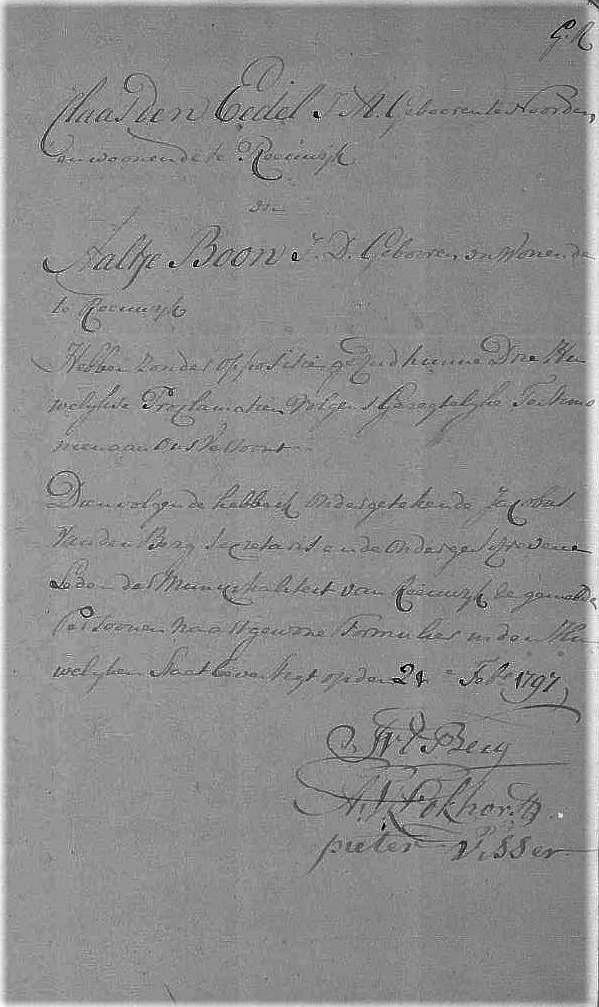 G. R
Claas den Eedel J. M. Geboren te Noorden,
en woonende te Reeuwyk
en
Aaltje Boon J. D. Geboren en Wonende
te Reeuwyk
Hebben zonder oppositie gehad hunne Drie Hu
welykse Proclamatien volgens Geregtelyke Testimo
nien aan Ons Vertoont
Dienvolgende hebbe ik ondergetekende Jacobus
Van den Berg Secretaris en de ondergeschrevene
Leden der Municipaliteit van Reeuwyk de gemelde
Persoonen na 't gewone Formulier in den Hu
welyken Staat bevestigt op den 21 e Feb 1797
Berg
A. V. Lokhorst
pieter Visser